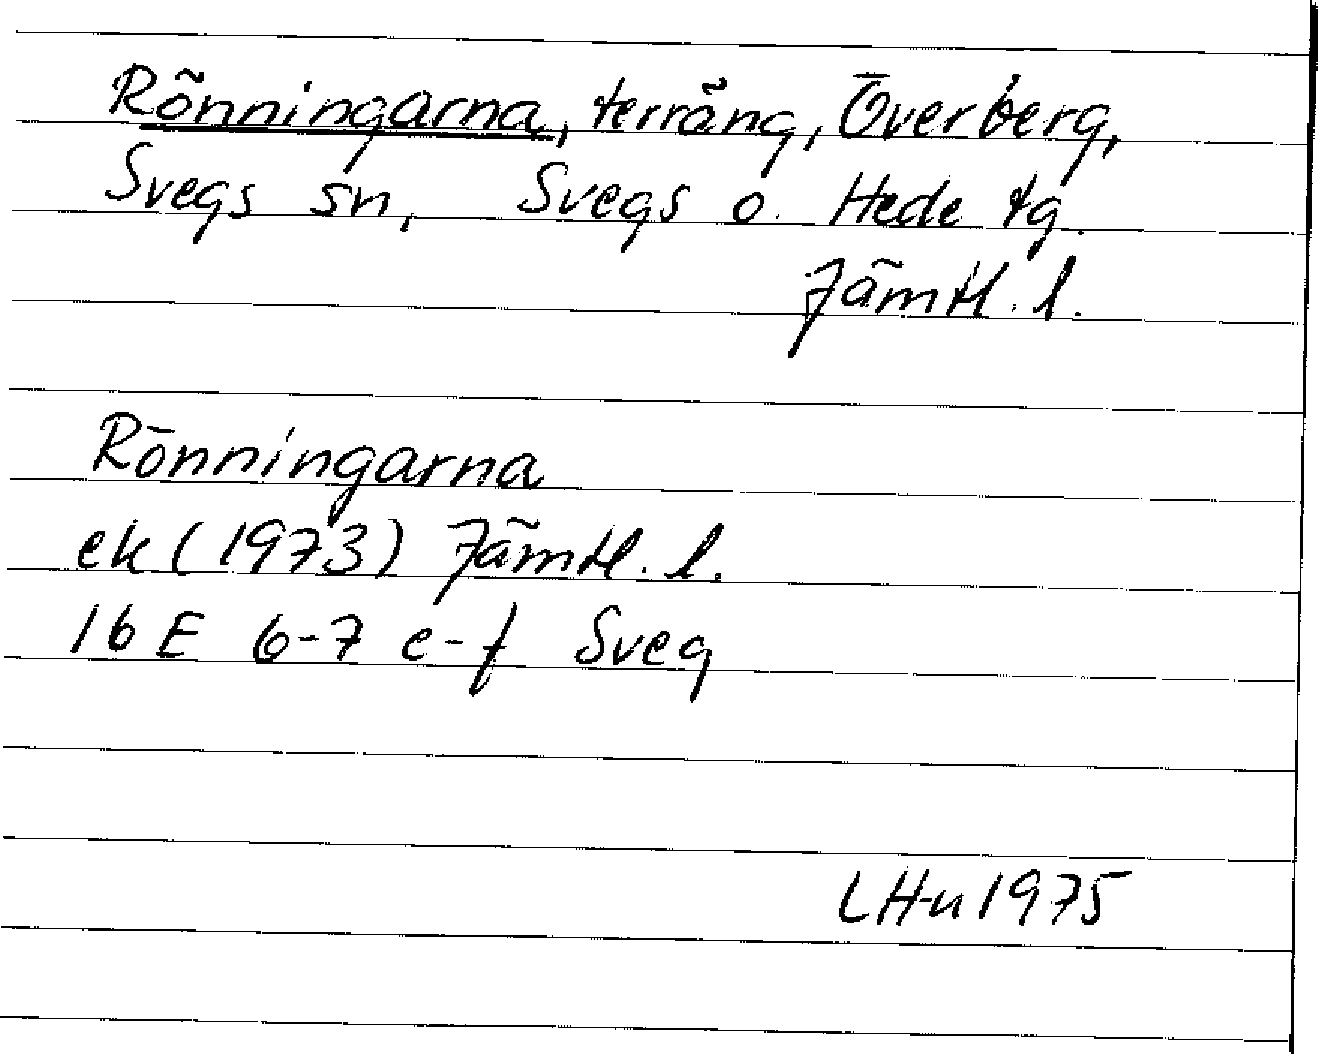 Rönningarna, terräng, Överberg,
Svegs sn, Svegs o. Hede tg.
Jämtl. l.
Rönningarna
ek (1973) Jämtl. l.
16 E 6-7 e-f Sveg
LH-n 1975